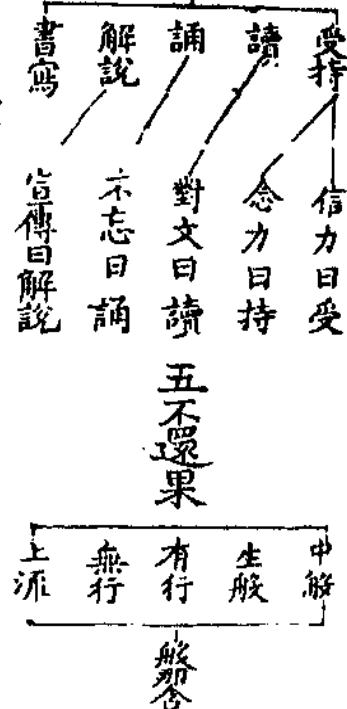 受持
讀
誦
解說
書寫
信力曰受
念力曰持
對文曰讀
不忘曰誦
宣傳曰解說
五不還果
中般
生般
有行
無行
上流
般那含